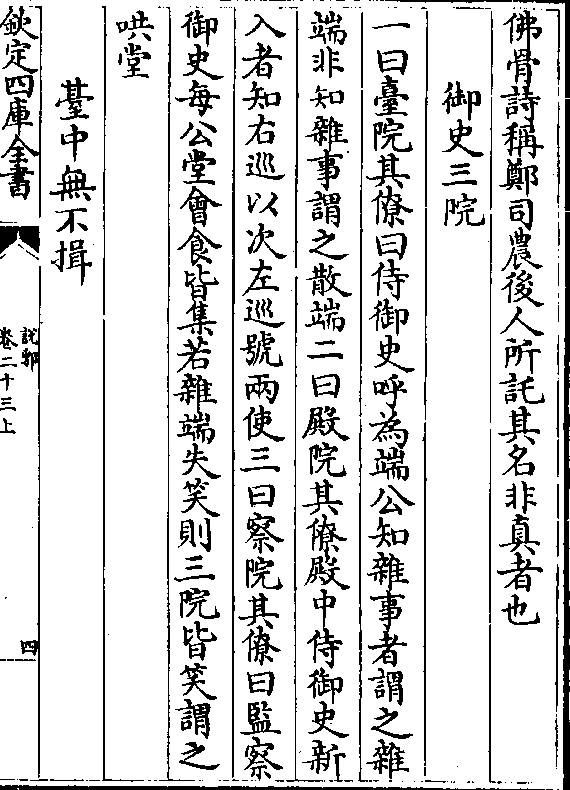 佛骨詩稱鄭司農後人所託其名非真者也
御史三院
一曰臺院其僚曰侍御史呼為端公知雜事者謂之雜
端非知雜事謂之散端二曰殿院其僚殿中侍御史新
入者知右巡以次左巡號兩使三曰察院其僚曰監察
御史每公堂會食皆集若雜端失笑則三院皆笑謂之
哄堂
臺中無不揖
欽定四庫全書
說郛
卷二十三上
四